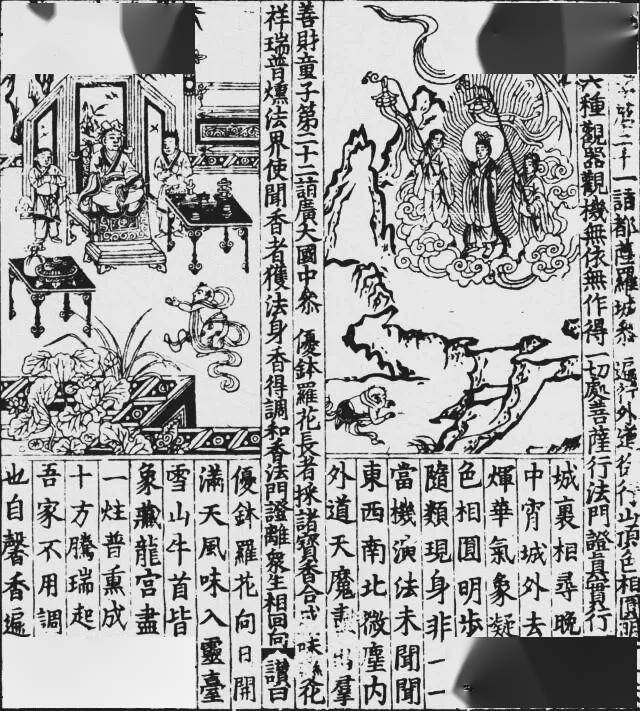 二十一詣都薩羅城參 遍行外道行山頂色相圓明
六種觀器觀機無依無作得一切處菩薩行法門證真實行
城裏相尋晚
中宵城外去
煇華氣象凝
色相圓明步
隨類現身非一一
當機演法未聞聞
東西南北微塵內
外道天魔盡出羣
善財童子第二十二詣廣大國中參 優鉢羅花長者採諸寶香合味花
祥瑞普燻法界使聞香者獲法身香得調和香法門證離衆生相回向 讚曰
優鉢羅花向日開
滿天風味入靈臺
雪山牛首皆
象藏龍宮盡
一炷普熏成
十方騰瑞起
吾家不用調
也自馨香遍